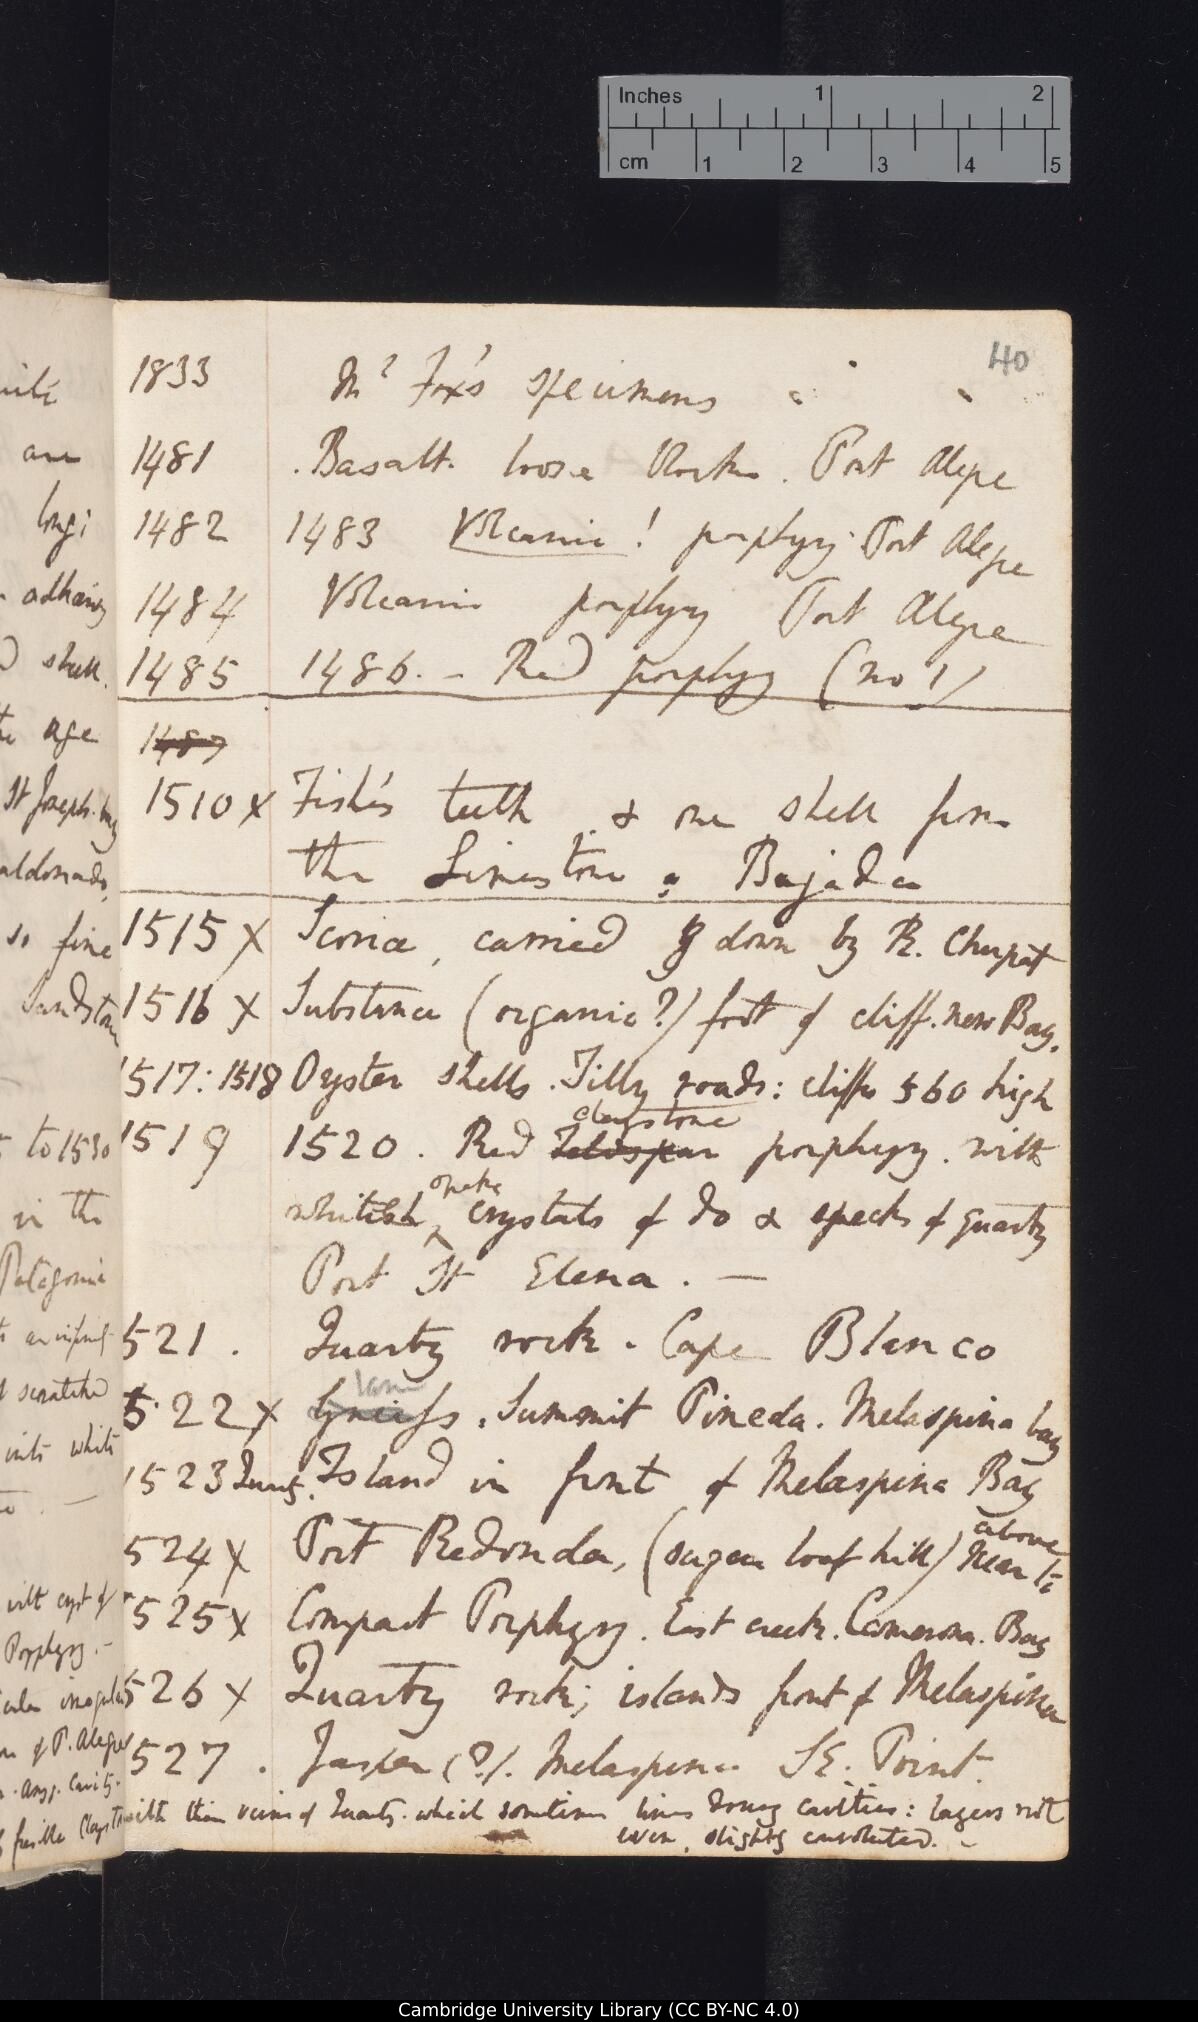 Inches 1 2
cm 1 2 3 4 5
40
1833 Mr Fox's specimens " "
1481 . Basalt. loose blocks. Port Alegre
1482 1483 Volcanic! porphyry Port Alegre
1484 Volcanic porphyry Port Alegre
1485 1486. - Red porphyry (no 1)
1487
1510 x Fish's teeth & one shell from
the Limestone: Bajada
1515 x Scoriæ, carried down by R. Chupat
1516 x Substance (organic?) foot of cliff. new Bay.
1517: 1518 Oyster shells. Tilly roads: cliffs 560 high
claystone
1519 1520. Red Feldspar porphyry. with
opake
whitish crystals of do & specks of quartz
Port St Elena. —
521. Quartz rock. Cape Blanco
522 x Gneiss. Summit Pineda. Melaspina bay
1523 Island in front of Melaspina Bay
above
524 x Port Redonda, (sugar loaf hill) Near
525 x Compact Porphyry. East creek. Camerona. Bay
526 x Quartz rock; islands front of Melaspina
527. Jasper (?). Melaspina SE. Point.
with thin veins of Quartz. which sometimes lines cavities: layers not
even, slightly convoluted. —
are
longi
adhering
shell.
the age
St Joseph. bay
aldonado,
so fine
Sandstone
to 1530
in the
Patagonia
scratched
into white
with cryst of
Porphyry. —
irregular
of P. Alegre
Cambridge University Library (CC BY-NC 4.0)